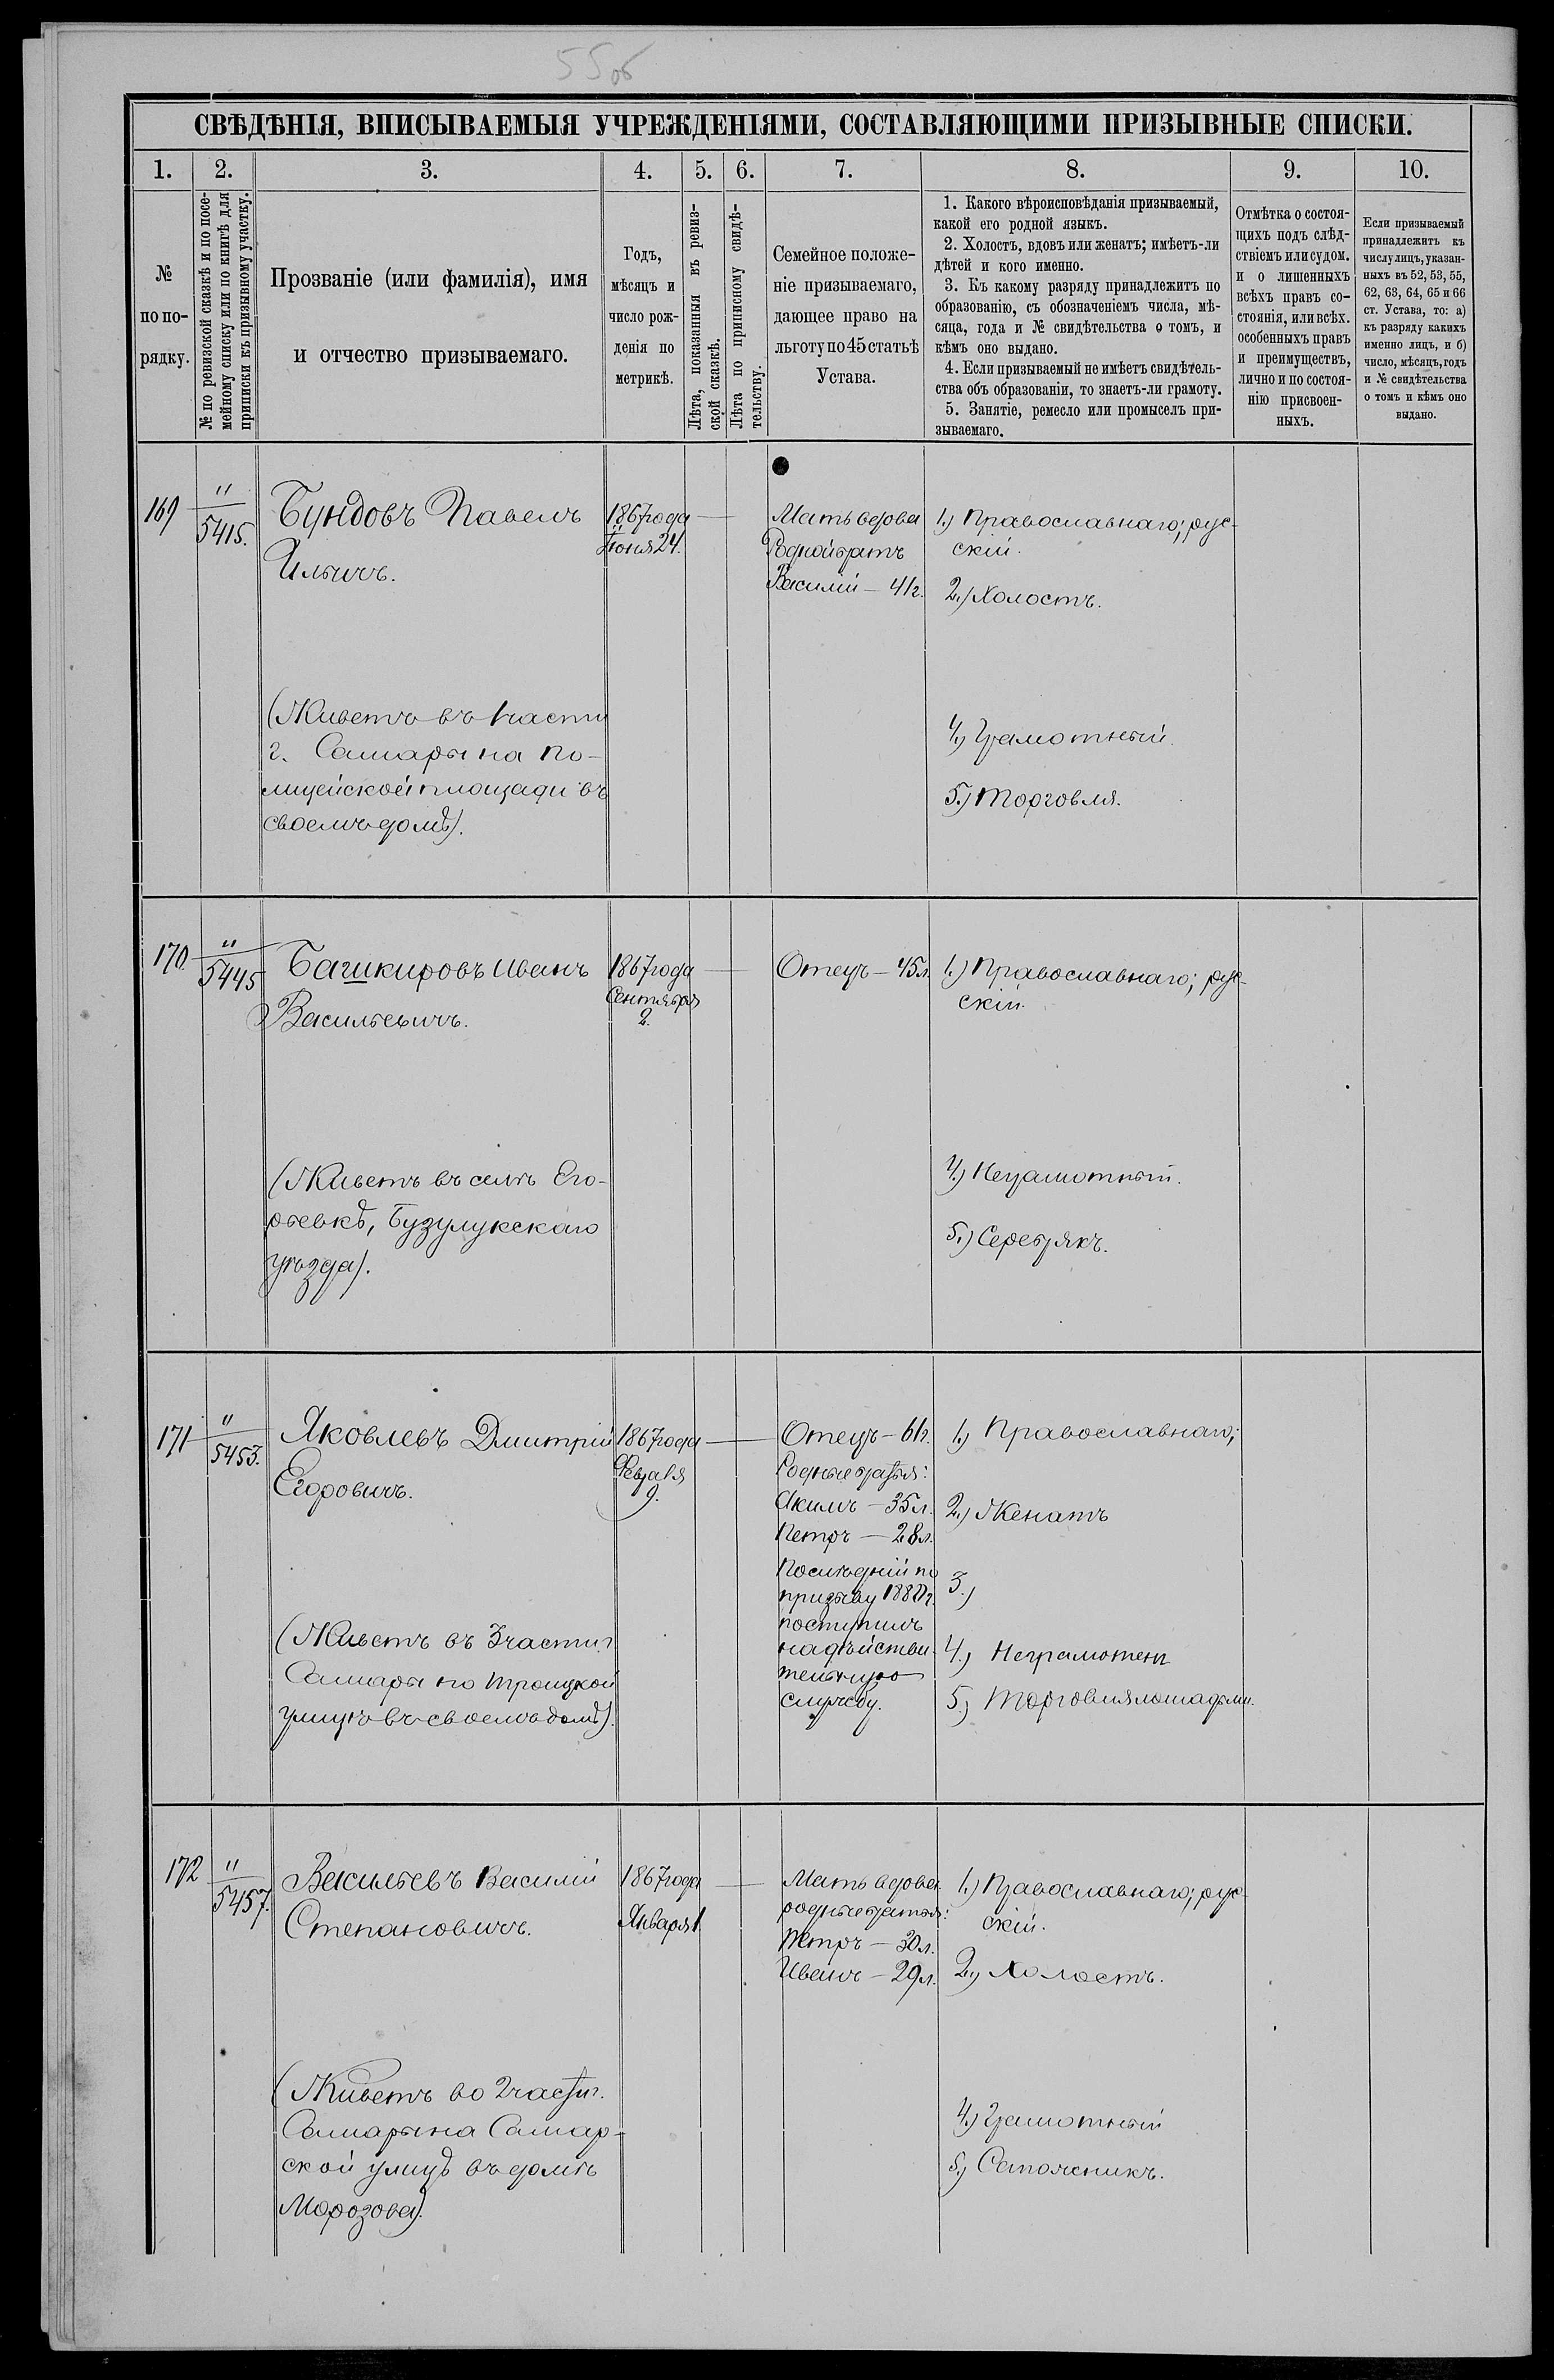 55об
СВѢДѢНІЯ, ВПИСЫВАЕМЫЯ УЧРЕЖДЕНІЯМИ, СОСТАВЛЯЮЩИМИ ПРИЗЫВНЫЕ СПИСКИ.
1.
№
по по-
рядку.
2.
№ по ревизской сказкѣ и по посе-
мейному списку или по книгѣ для
приписки къ призывному участку.
3.
Прозваніе (или фамилія), имя
и отчество призываемаго.
4.
Годъ,
мѣсяцъ и
число рож-
денія по
метрикѣ.
5.
Лѣта, показанныя въ ревиз-
ской сказкѣ.
6.
Лѣта по приписному свидѣ-
тельству.
7.
Семейное положе-
ніе призываемаго,
дающее право на
льготу по 45 статьѣ
Устава.
8.
1. Какого вѣроисповѣданія призываемый,
какой его родной языкъ.
2. Холостъ, вдовъ или женатъ; имѣетъ-ли
дѣтей и кого именно.
3. Къ какому разряду принадлежитъ по
образованію, съ обозначеніемъ числа, мѣ-
сяца, года и № свидѣтельства о томъ, и
кѣмъ оно выдано.
4. Если призываемый не имѣетъ свидѣтель-
ства объ образованіи, то знаетъ-ли грамоту.
5. Занятіе, ремесло или промыселъ при-
зываемаго.
9.
Отмѣтка о состоя-
щихъ подъ слѣд-
ствіемъ или судом.
и о лишенныхъ
всѣхъ правъ со-
стоянія, или всѣх.
особенныхъ правъ
и преимуществъ,
лично и по состоя-
нію присвоен-
ныхъ.
10.
Если призываемый
принадлежитъ къ
числу лицъ, указан-
ныхъ въ 52, 53, 55,
62, 63, 64, 65 и 66
ст. Устава, то: а)
къ разряду какихъ
именно лицъ, и б)
число, мѣсяцъ, годъ
и № свидѣтельства
о томъ и кѣмъ оно
выдано.
169
"
5415.
Бундовъ Павелъ
Ильичъ.
(Живетъ въ 1 части
г. Самары на По-
лицейской площади въ
своемъ домѣ).
1867 года
Іюня 24.
Мать вдова
Родной братъ
Василій – 41 г.
1.) Православнаго; рус-
скій.
2.) Холостъ.
4.) Грамотный.
5.) Торговля.
170
"
5445
Башкировъ Иванъ
Васильевичъ.
(Живетъ въ селѣ Его-
рьевкѣ, Бузулукскаго
уѣзда).
1867 года
Сентября
2.
Отецъ – 45 л.
1.) Православнаго; рус-
скій.
4.) Неграмотный.
5.) Серебрякъ.
171
"
5453.
Яковлевъ Дмитрій
Егоровичъ.
(Живетъ въ 3 части г.
Самары по Троицкой
улицѣ въ своемъ домѣ).
1867 года
Февраля
9.
Отецъ – 61 г.
Родные братья:
Акимъ – 35 л.
Петръ – 28 л.
Послѣдній по
призыву г.
поступилъ
на дѣйстви-
тельную
службу.
1.) Православнаго;
2.) Женатъ
3.)
4.) Неграмотенъ
5.) Торговля лошадьми.
172
"
5457.
Васильевъ Василій
Степановичъ.
(Живетъ во 2 части г.
Самары на Самар-
ской улицѣ въ домѣ
Морозова).
1867 года
Января 1
Мать вдова
родные братья:
Петръ – 30 л.
Иванъ – 29 л.
1.) Православнаго; рус-
скій.
2.) Холостъ.
4.) Грамотный
5.) Сапожникъ.